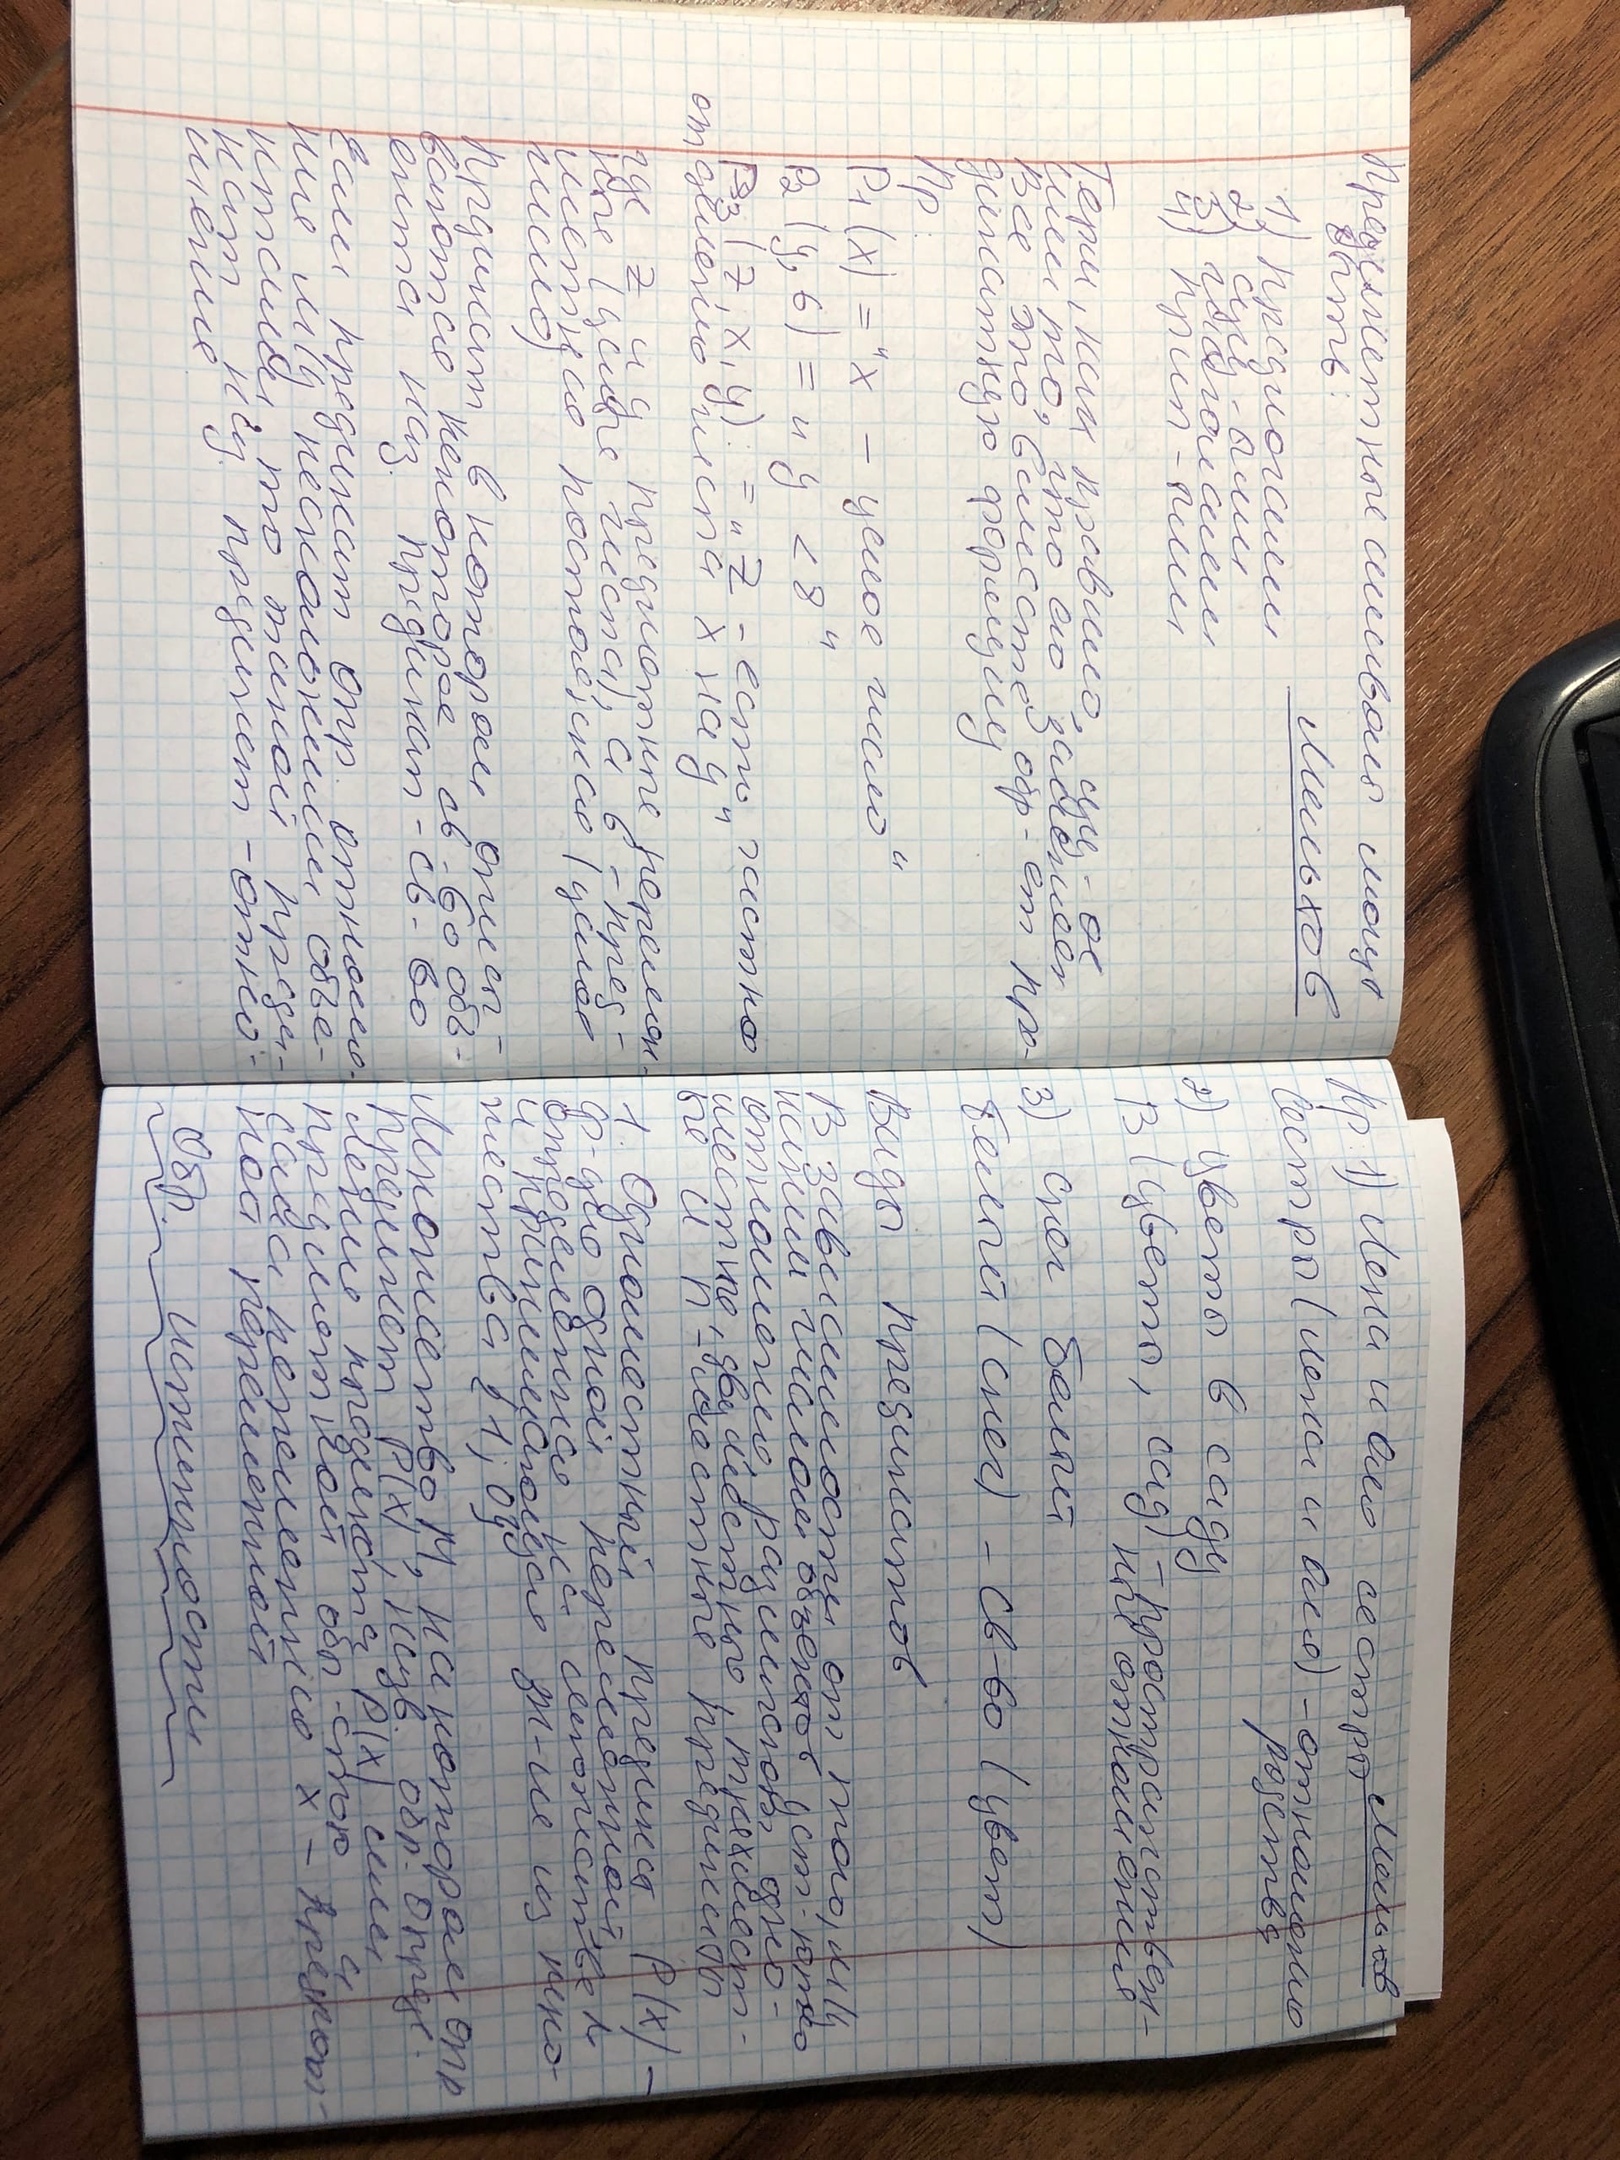 Предикатные символы могут
быть:
Мельхов
1) предлогами
2) сущ-ыми
3) глаголами
4) прил-ыми
Терм, как правило, сущ-ое
или то, что его заменяет
Все это вместе обр-ет пре-
дикатную формулу
Пр:
P1 (x) = "x - целое число"
P2 (y, 6) = "y < 8"
P3 (z, x, y) : = "z - есть частное
от деления числа x на y"
где z и y предметные перемен-
ные (целые числа), а 6 - пред-
метная постоянная (целое
число)
Прдикат, в котором описы-
ваются некоторое св-во объ-
екта наз. предикат-св-во
Если предикат опр. отноше-
ние м/у несколькими объе-
ктами, то такой преди-
кат наз. предикат-отно-
шение
Пр. 1) Лена и Оля сестры Мельхов
Сестры (Лена и Оля) - отношение
родства
2) Цветы в саду
В (цветы, сад) - пространствен-
ные отношения
3) Снег белый
белый (снег) - св-во (цвет)
Виды предикатов
В зависимости от того, м/у
каким числом объектов уст-ются
отношение, различают одно-
местные, двуместные, трехмест-
ые и n-местные предикаты
1. Одноместный предикат P(x) -
ф-ция одной переменной,
определенная на множестве M
и принимающая зн-ие из мно-
жества {1; 0}
Множество M, на котором опр
предикат P(x), назв. обр. опреде-
ления предиката P(x) или
предметной обр-стью и
сама переменная x - предмет-
ной переменной
Обр. истинности